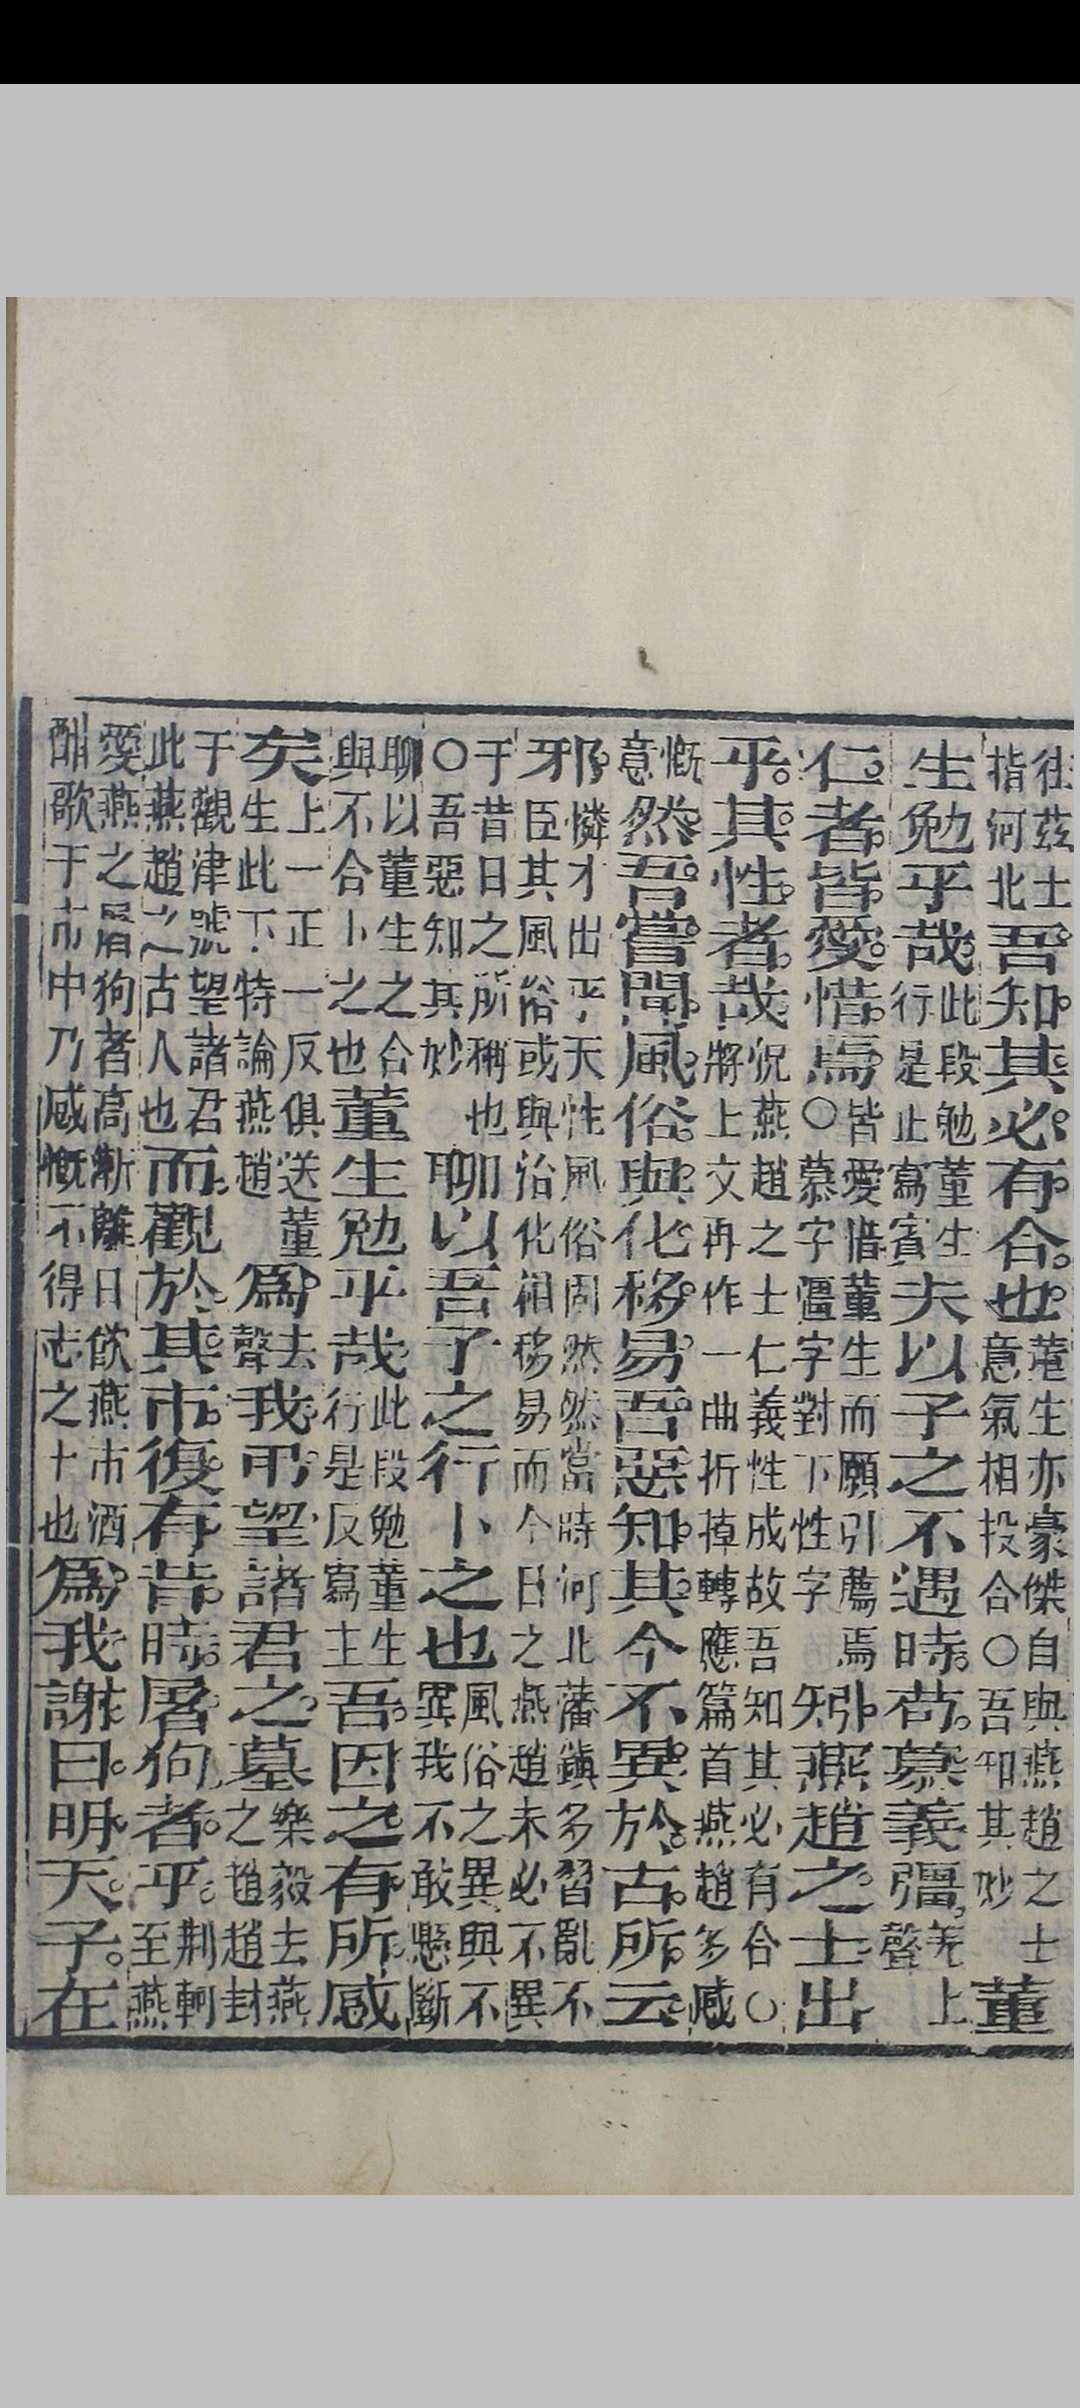 往茲土指河北吾知其必有合也董生亦豪傑自與燕趙之士意氣相投合○吾知其妙董
生勉乎哉此段勉董生行是止寫賓夫以子之不遇時苟慕義彊羌上聲
仁者皆愛惜焉皆愛惜董生而願引薦焉○慕字彊字對下性字矧燕趙之士出
乎其性者哉況燕趙之士仁義性成故吾知其必有合○將上文再作一曲折掉轉應篇首燕趙多感
慨意然吾嘗聞風俗與化移易吾惡知其今不異於古所云
邪憐才出乎天性風俗固然然當時河北藩鎮多習亂不臣其風俗或與治化相移易而今日之燕趙未必不異
于昔日之所稱也○吾惡知其妙聊以吾子之行卜之也風俗之異與不異我不敢懸斷
聊以董生之合與不合卜之也董生勉乎哉此段勉董生行是反寫主吾因之有所感
矣上一正一反俱送董生此下特論燕趙爲去聲我弔望諸君之墓樂毅去燕之趙趙封
于觀津號望諸君此燕趙之古人也而觀於其市復有昔時屠狗者乎荆軻至燕
愛燕之屠狗者高漸離日飲燕市酒酣歌于市中乃感慨不得志之士也爲我謝曰明天子在